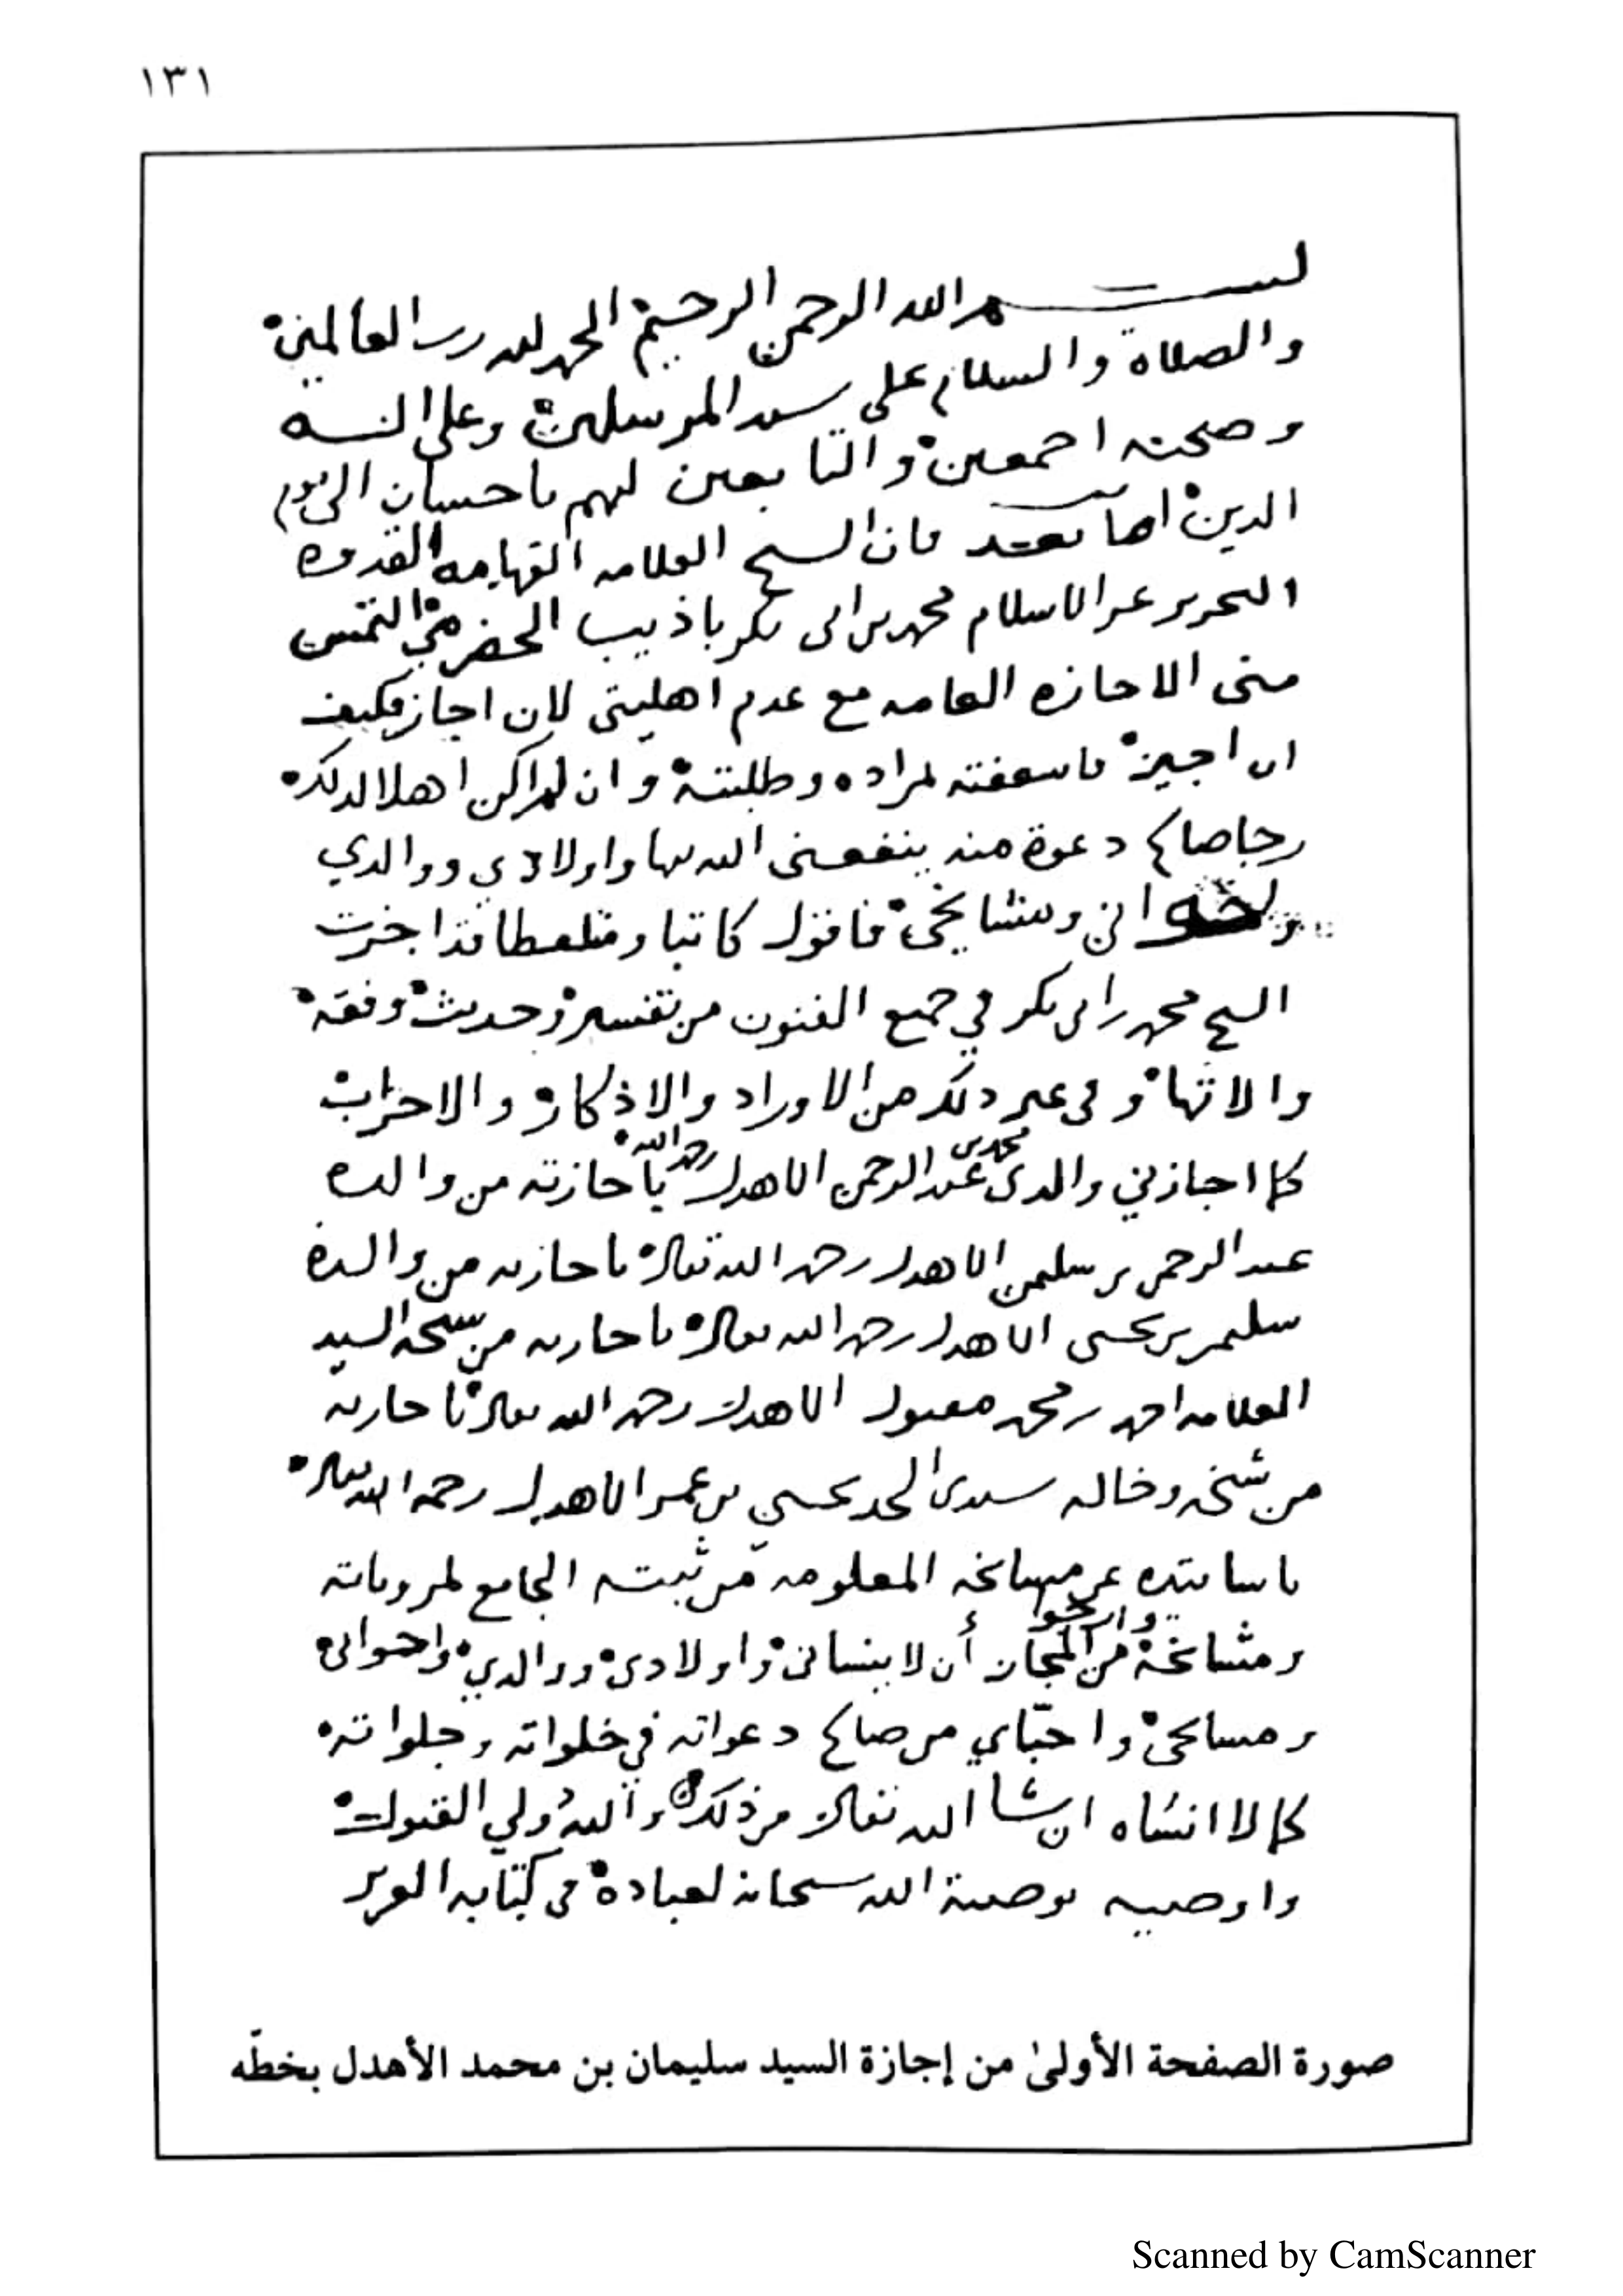 ١٣١
بسم الله الرحمن الرحيم الحمد لله رب العالمين
والصلاة والسلام على سيد المرسلين وعلى اله
وصحبه اجمعين والتابعين لهم باحسان الى يوم
الدين اما بعد فان الشيخ العلامه الفهامه القدوه
النحرير عز الاسلام محمد بن ابى بكر باذيب الحضرمي التمس
منى الاجازه العامه مع عدم اهليتى لان اجاز فكيف
ان اجيز فاسعفته لمراده وطلبته وان لم اكن اهلا لذلك
رجا صالح دعوة منه ينفعنى الله بها واولادي ووالدي
واخوانى ومشايخى فاقول كاتبا ومتلفظا قد اجزت
الشيخ محمد بن ابى بكر في جميع الفنون من تفسير وحديث وفقه
والاتها وفى غير ذلك من الاوراد والاذكار والاحزاب
كما اجازني والدى محمد بن عبد الرحمن الاهدل رحمه الله باجازته من والده
عبد الرحمن بن سليمن الاهدل رحمه الله تعالى باجازته من والده
سليمن بن يحيى الاهدل رحمه الله تعالى باجازته من شيخه السيد
العلامه احمد بن محمد مقبول الاهدل رحمه الله تعالى باجازته
من شيخه وخاله سيدى الجد يحيى بن عمر الاهدل رحمه الله تعالى
باسانيده عن مشايخه المعلومه من ثبته الجامع لمروياته
ومشايخه وارجوا من المجاز أن لا ينسانى واولادى ووالدي واخوانى
ومشايخى واحبّاي من صالح دعواته في خلواته وجلواته
كما لا انساه ان شا الله تعالى من ذلك والله ولي القبول
واوصيه بوصية الله سبحانه لعباده فى كتابه العزيز
صورة الصفحة الأولىٰ من إجازة السيد سليمان بن محمد الأهدل بخطّه
Scanned by CamScanner